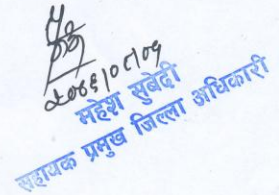 २०७६।०८।०१
महेश सुवेदी
सहायक प्रमुख जिल्ला अधिकारी